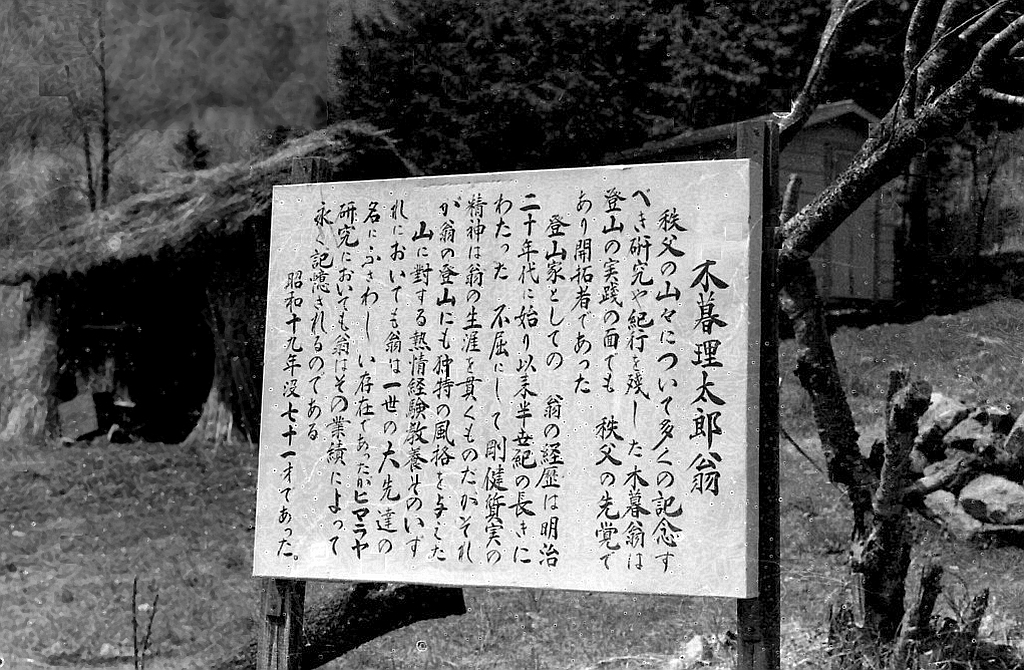 木暮理太郎翁
秩父の山々について多くの記念す
べき研究や紀行を残した木暮翁は
登山の実践の面でも 秩父の先覚で
あり開拓者であった
登山家としての 翁の経歴は明治
二十年代に始り以来半世紀の長きに
わたった 不屈にして剛健質実の
精神は翁の生涯を貫くものだがそれ
が翁の登山にも独特の風格を与えた
山に對する熱情経験教養そのいず
れにおいても翁は一世の大先達の
名にふさわしい存在であったがヒマラヤ
研究においても翁はその業績によって
永く記憶されるのである
昭和十九年没七十一才であった。